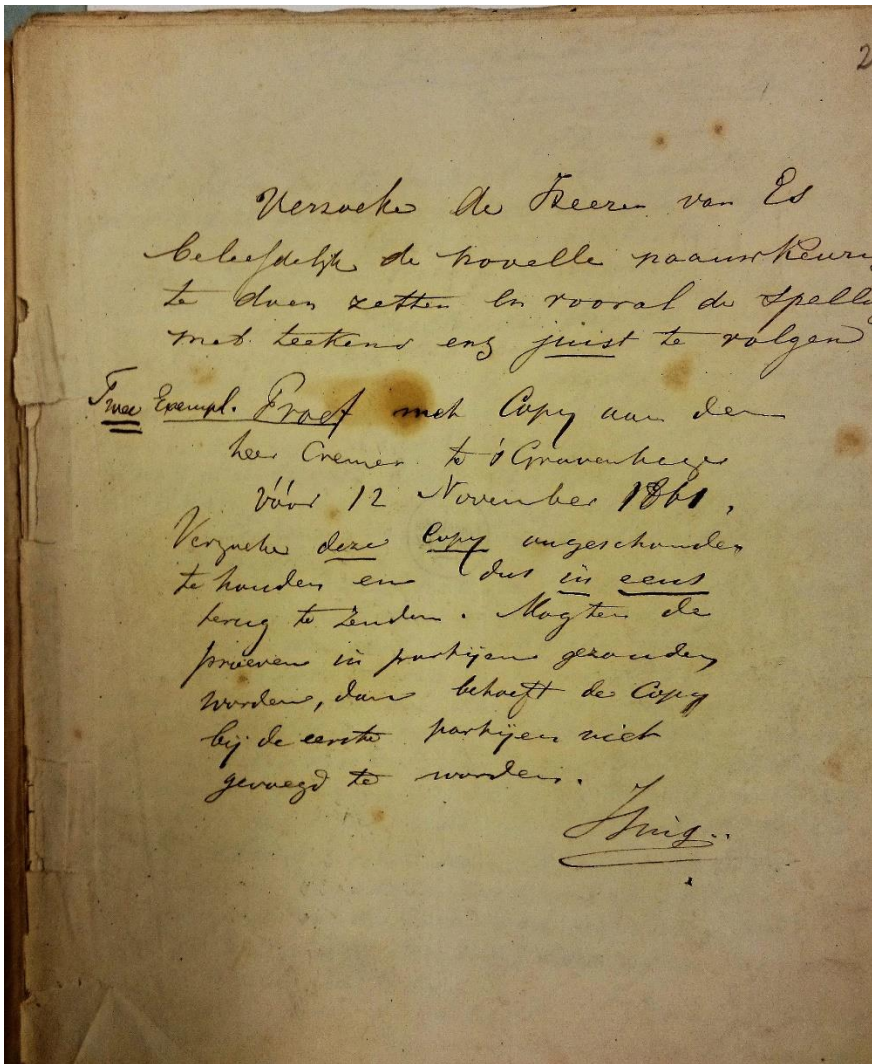 2
Verzoeke de Heeren van Es
beleefdelijk de novelle naauwkeurig
te doen zetten en vooral de spelling
met teekens enz juist te volgen
Twee Exempl. Proef met Copy aan den
heer Cremer te 's Gravenhage
vóór 12 November 1861.
Verzoeke deze Copy ongeschonden
te houden en dus in eens
terug te zenden. Mogten de
proeven in partijen gezonden
worden, dan behoeft de Copy
bij de eerste partijen niet
gevoegd te worden.